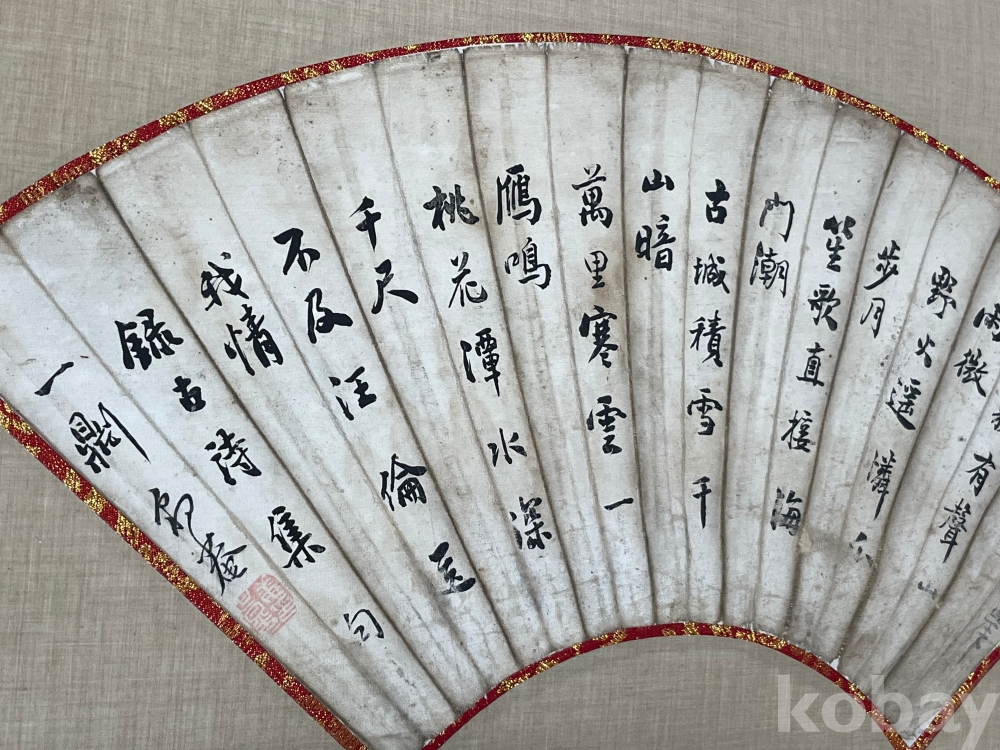 微
有聲山
野火遥
步月
笙歌直接海
門潮
古城積雪千
山暗
萬里寒雲一
鴈鳴
桃花潭水深
千尺
不及汪倫送
我情
録古詩集句
一鼎
菴
kobay